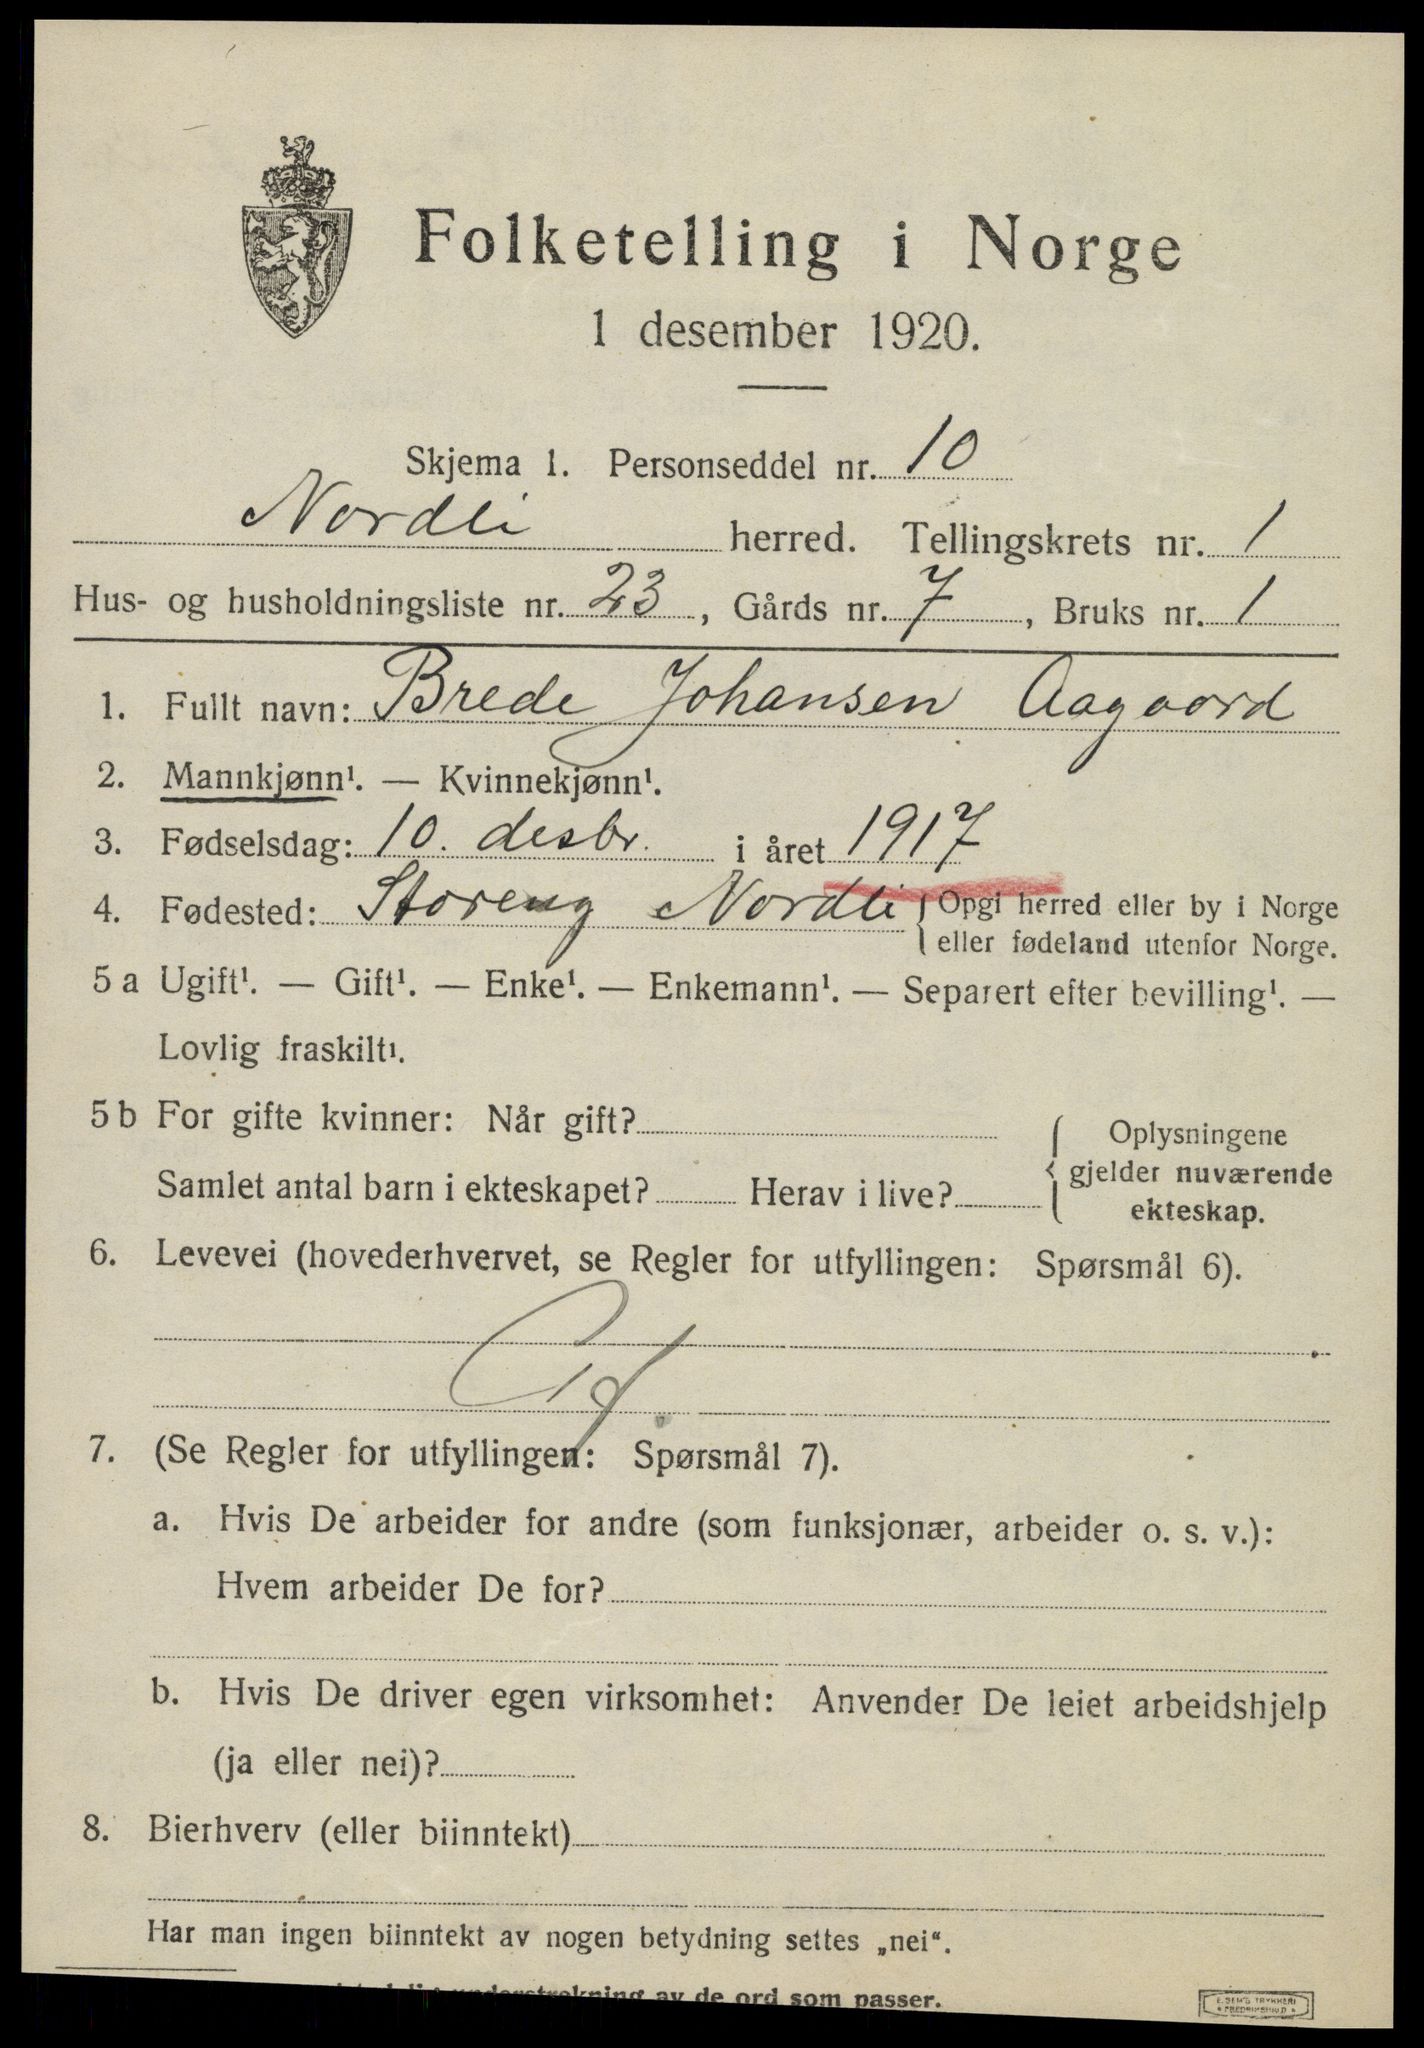 Folketelling i Norge
1 desember 1920.
Skjema 1. Personseddel nr. 10
Nordli herred. Tellingskrets nr. 1
Hus- og husholdningsliste nr. 23, Gårds nr. 7, Bruks nr. 1
1. Fullt navn: Brede Johansen Aagaard
2. Mannkjønn¹. — Kvinnekjønn¹.
3. Fødselsdag: 10. desbr. i året 1917
4. Fødested: Storeng Nordli { Opgi herred eller by i Norge
eller fødeland utenfor Norge.
5 a Ugift¹. — Gift¹. — Enke¹. — Enkemann¹. — Separert efter bevilling¹. —
Lovlig fraskilt¹.
5 b For gifte kvinner: Når gift?
Samlet antal barn i ekteskapet? Herav i live?
{ Oplysningene
gjelder nuværende
ekteskap.
6. Levevei (hovederhvervet, se Regler for utfyllingen: Spørsmål 6).
7. (Se Regler for utfyllingen: Spørsmål 7).
a. Hvis De arbeider for andre (som funksjonær, arbeider o. s. v.):
Hvem arbeider De for?
b. Hvis De driver egen virksomhet: Anvender De leiet arbeidshjelp
(ja eller nei)?
8. Bierhverv (eller biinntekt)
Har man ingen biinntekt av nogen betydning settes „nei“.
understrekning av de ord som passer.